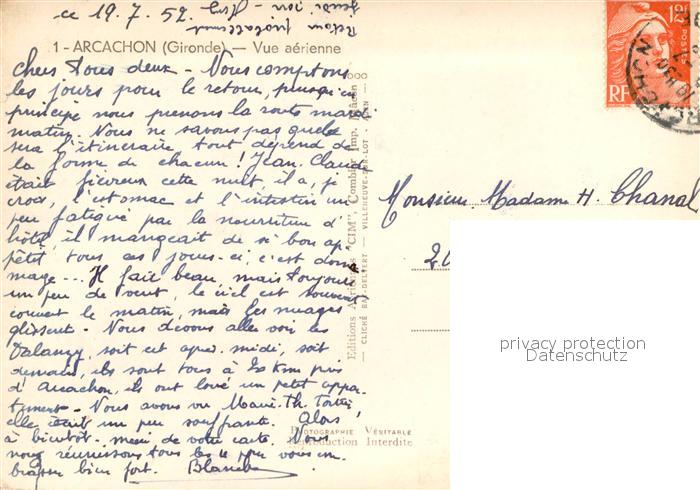 ce 19.7.52
Retour probablement
jeudi soir -
1 - ARCACHON (Gironde) — Vue aérienne
Chers tous deux - Nous comptons
les jours pour le retour, puisqu'en
principe nous prenons la route mardi
matin. Nous ne savons pas quelle
sera l'itinéraire, tout dépend de
la forme de chacun! Jean-Claude
était fiévreux cette nuit il a, je
crois, l'estomac et l'intestin un
peu fatigué par la nourriture d'
hôtel, il mangeait de si bon ap-
pétit tous ces jours-ci, c'est dom
mage... Il fait beau, mais toujours
un peu de vent, le ciel est souvent
couvert le matin, mais les nuages
glissent - Nous devons aller voir les
Valanzy, soit cet après-midi, soit
demain, ils sont tous à près
d'Arcachon, ils ont loué un petit appar-
tement - Nous avons vu Marie-Th.
elle était un peu souffrante. Alors
à bientôt - merci de votre carte. Nous
nous réunissons tous les pour vous em-
brasser bien fort. Blanche
Editions Aériennes "CIM", Combier Imp. Mâcon
— CLICHÉ RAY-DELVERT - VILLENEUVE-SUR-LOT
PHOTOGRAPHIE VÉRITABLE
Reproduction Interdite
12F
POSTES
RF
Monsieur Madame H. Chanal
20
privacy protection
Datenschutz